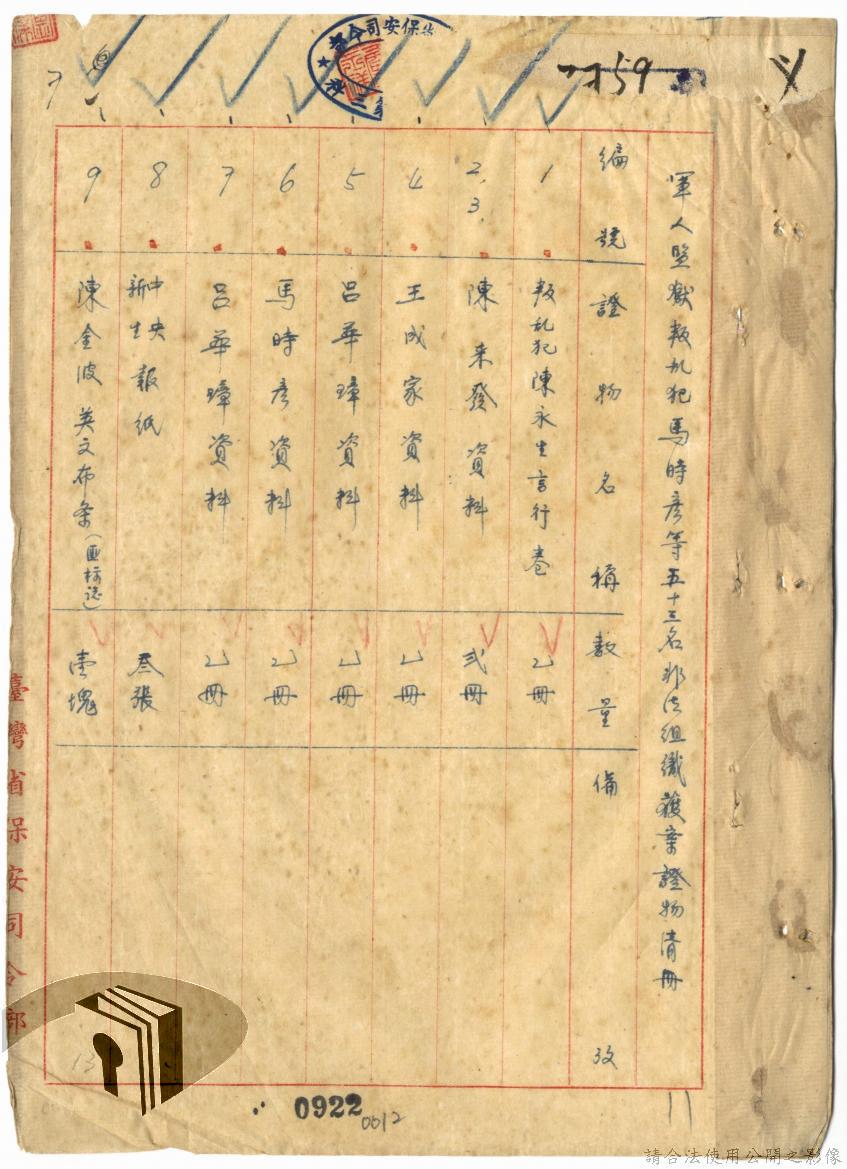 軍人監獄叛乱犯馬時彥等五十三名非法組織獲案證物清冊
編號 證物名稱 數量 備攷
1 叛乱犯陳永生言行卷 乙冊
2.3. 陳來發資料 弍冊
4 王成家資料 乙冊
5 呂華璋資料 乙冊
6 馬時彥資料 乙冊
7 呂華璋資料 乙冊
8 中央新生報紙 叁張
9 陳金波英文布条(匪標誌) 壹塊
臺灣省保安司令部
0922
0012
11
13
請合法使用公開之影像